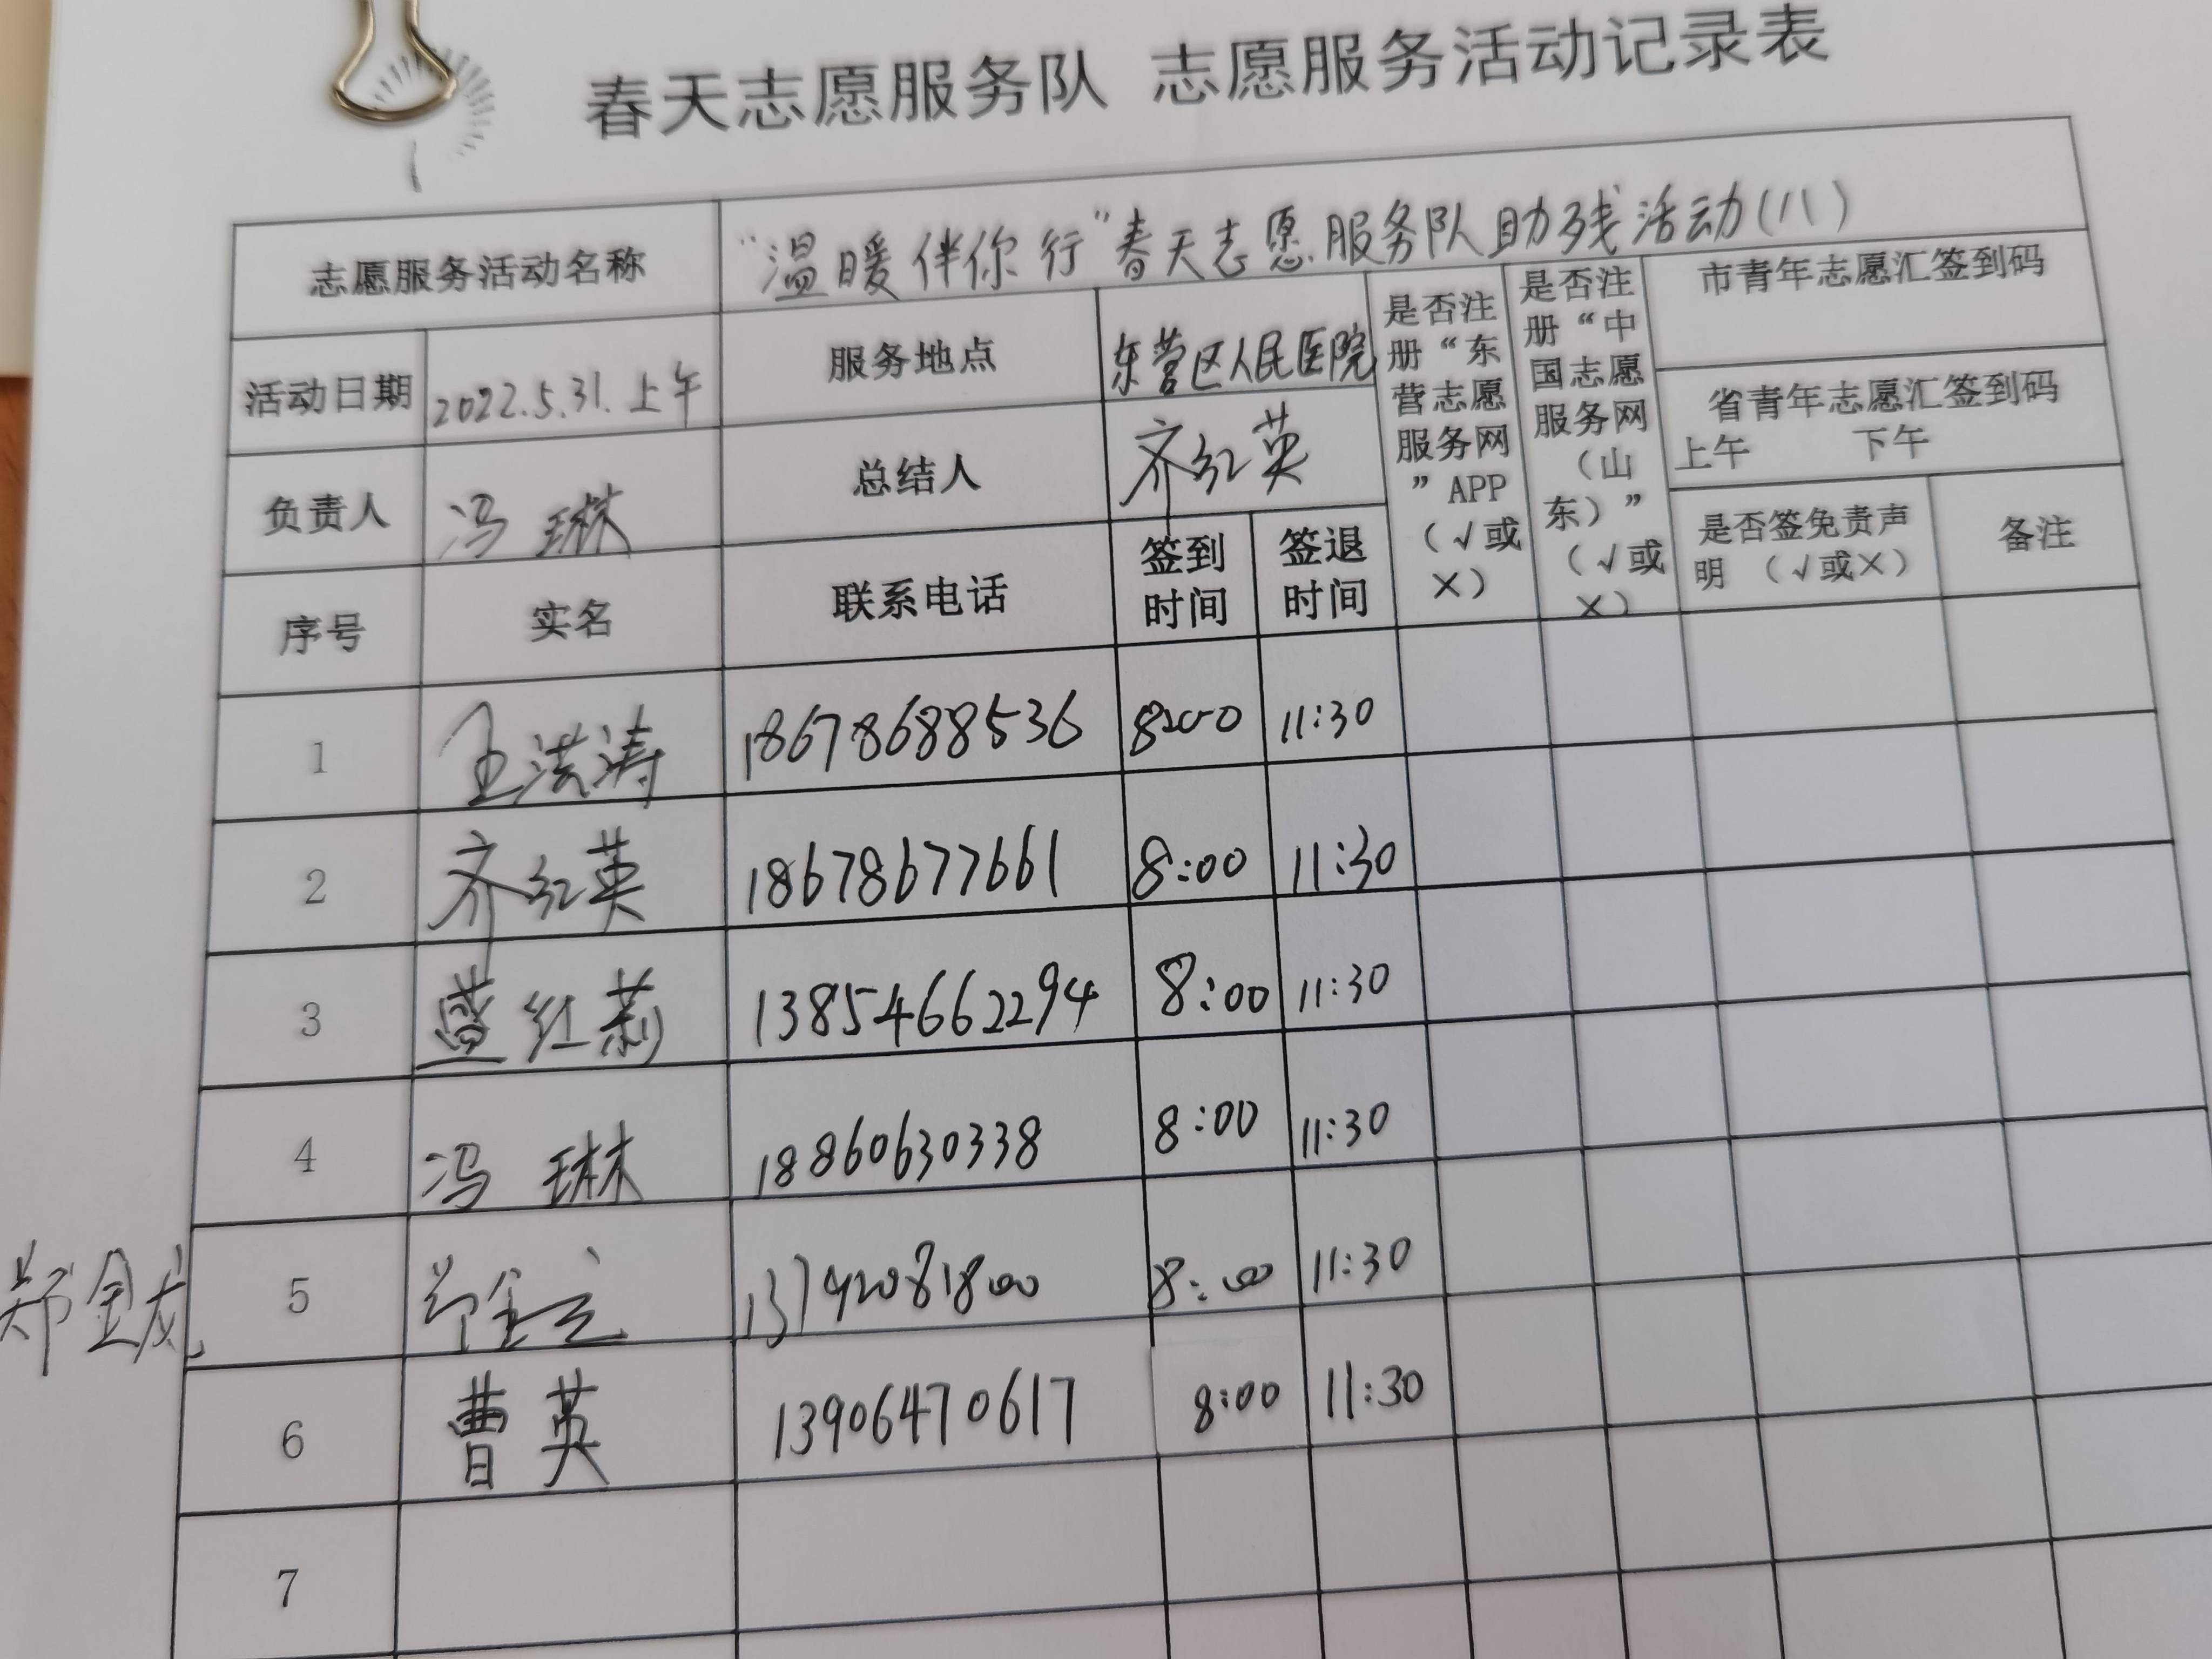 春天志愿服务队 志愿服务活动记录表
志愿服务活动名称 “温暖伴你行”春天志愿服务队助残活动(八)
活动日期 2022.5.31.上午 服务地点 东营区人民医院
负责人 冯琳 总结人 齐红英
是否注册“东营志愿服务网”APP（√或×）
是否注册“中国志愿服务网（山东）”（√或×）
市青年志愿汇签到码
省青年志愿汇签到码
上午 下午
序号 实名 联系电话 签到时间 签退时间 是否签免责声明（√或×） 备注
1 王洪涛 18678688536 8:00 11:30
2 齐红英 18678677661 8:00 11:30
3 盖红莉 13854662294 8:00 11:30
4 冯琳 18860630338 8:00 11:30
郑金龙 5 郑金龙 8:00 11:30
6 曹英 13906470617 8:00 11:30
7